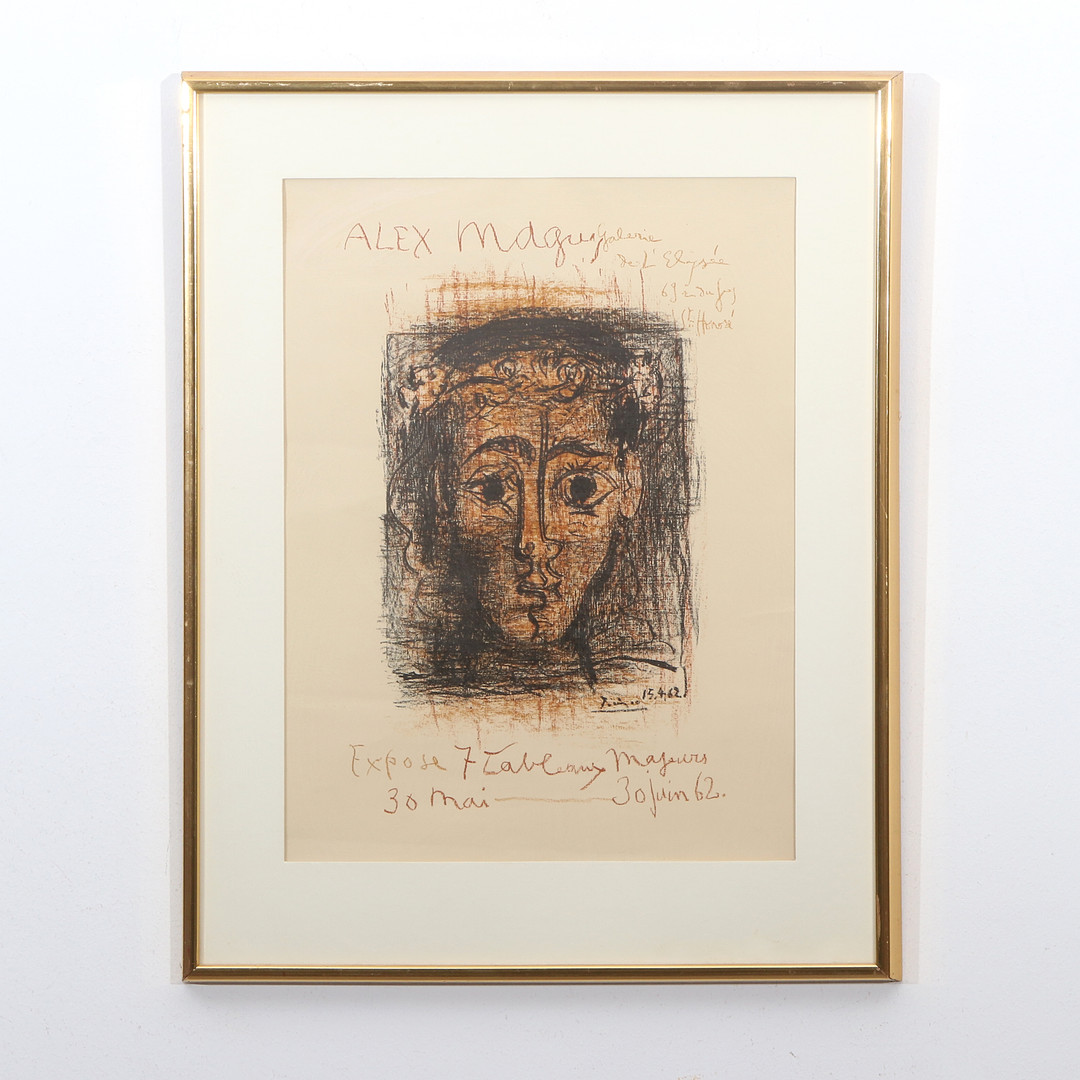 ALEX Maguy Galerie
de L'Elysée
69 rue du fbg
St. Honoré
Picasso 15.4.62.
Expose 7 tableaux Majeurs
30 Mai — 30 Juin 62.